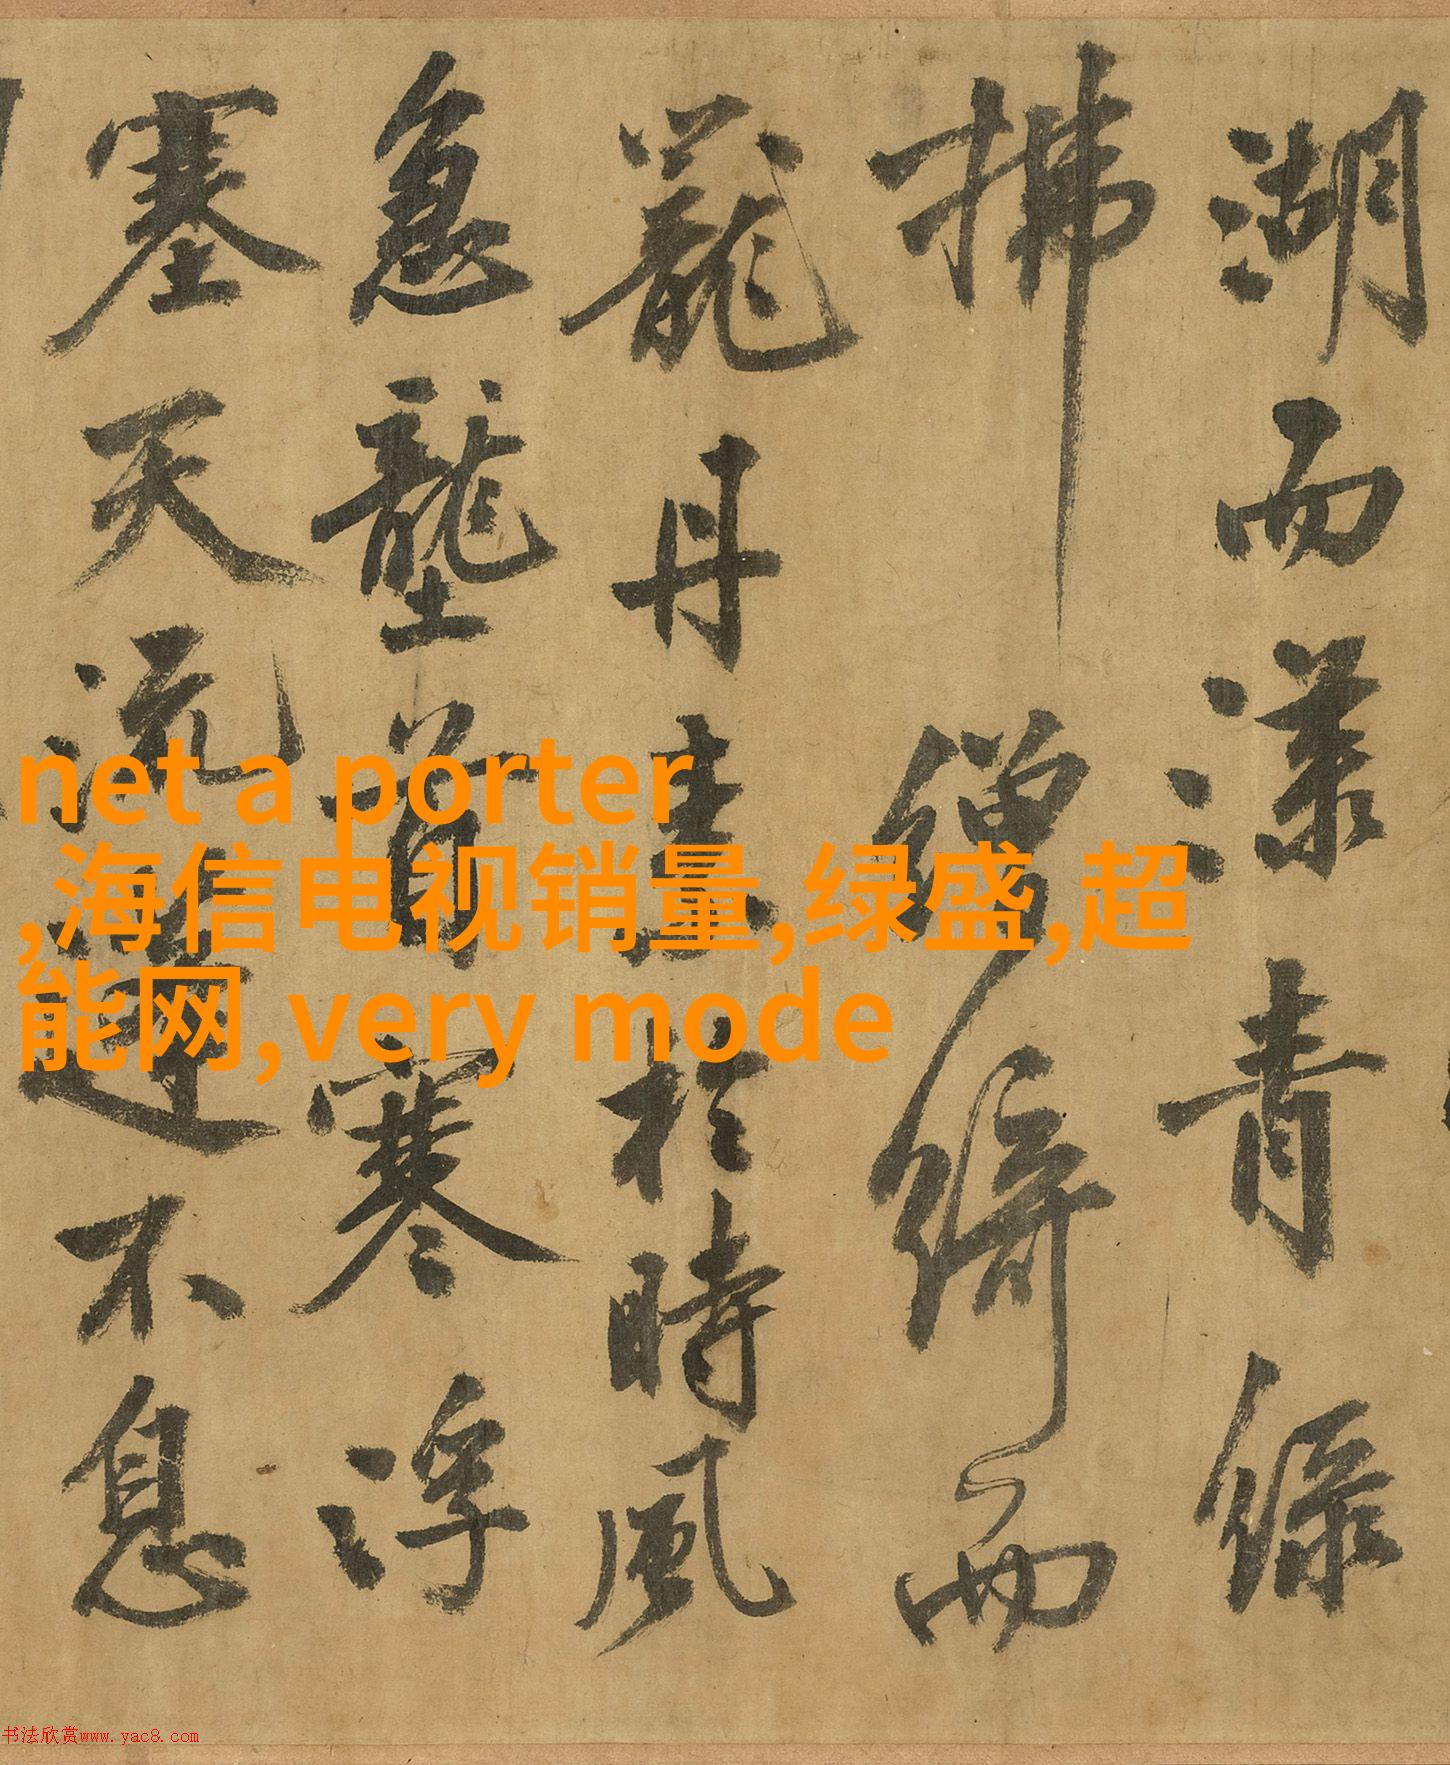 net a porter
,海信电视销量,绿盛,超
能网,very mode
湖而漾青綠
拂繒綺而
丹於時風
急壟首寒浮
塞天流不息
书法欣赏www.yac8.com